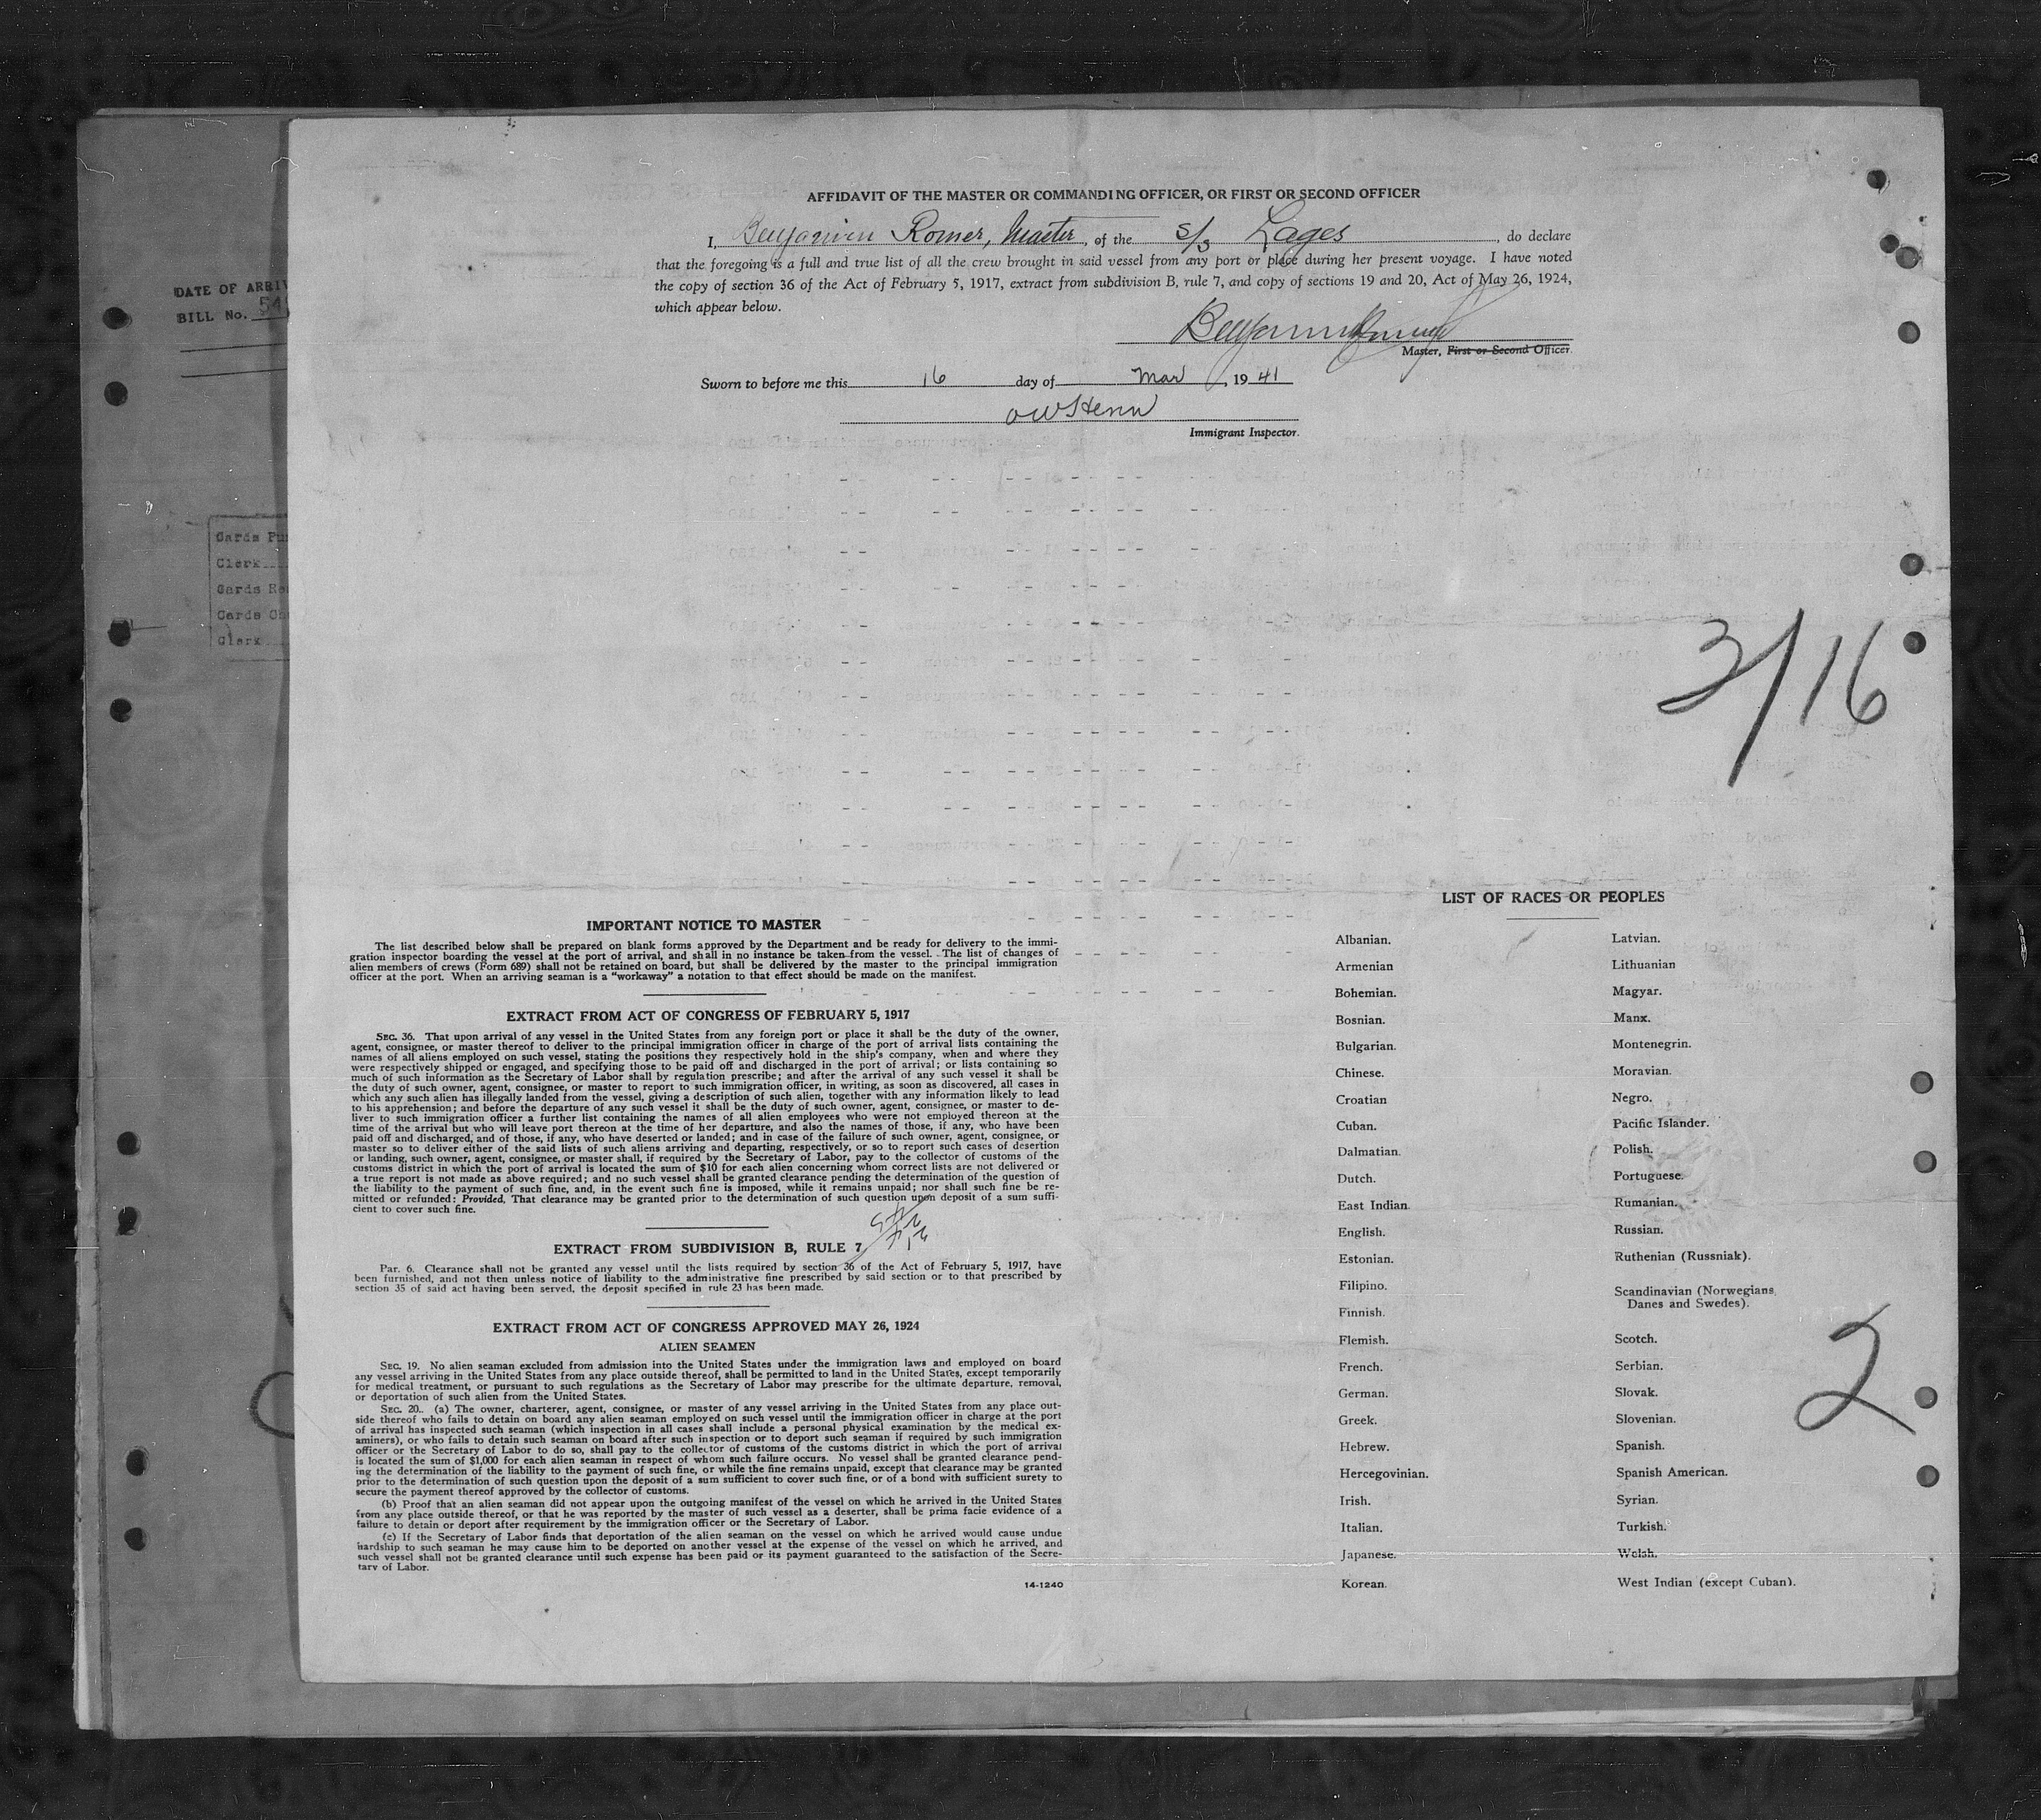 AFFIDAVIT OF THE MASTER OR COMMANDING OFFICER, OR FIRST OR SECOND OFFICER
I, Benjamin Romer, Master, of the S/S Lages, do declare
that the foregoing is a full and true list of all the crew brought in said vessel from any port or place during her present voyage. I have noted
the copy of section 36 of the Act of February 5, 1917, extract from subdivision B, rule 7, and copy of sections 19 and 20, Act of May 26, 1924,
which appear below.
Master, First or Second Officer.
Sworn to before me this 16 day of Mar, 19 41
Immigrant Inspector.
DATE OF ARRIV
BILL No. 54
Cards Pu
Clerk
Cards Re
Cards Ch
Clerk
3/16
IMPORTANT NOTICE TO MASTER
The list described below shall be prepared on blank forms approved by the Department and be ready for delivery to the immi-
gration inspector boarding the vessel at the port of arrival, and shall in no instance be taken from the vessel. The list of changes of
alien members of crews (Form 689) shall not be retained on board, but shall be delivered by the master to the principal immigration
officer at the port. When an arriving seaman is a "workaway" a notation to that effect should be made on the manifest.
EXTRACT FROM ACT OF CONGRESS OF FEBRUARY 5, 1917
SEC. 36. That upon arrival of any vessel in the United States from any foreign port or place it shall be the duty of the owner,
agent, consignee, or master thereof to deliver to the principal immigration officer in charge of the port of arrival lists containing the
names of all aliens employed on such vessel, stating the positions they respectively hold in the ship's company, when and where they
were respectively shipped or engaged, and specifying those to be paid off and discharged in the port of arrival; or lists containing so
much of such information as the Secretary of Labor shall by regulation prescribe; and after the arrival of any such vessel it shall be
the duty of such owner, agent, consignee, or master to report to such immigration officer, in writing, as soon as discovered, all cases in
which any such alien has illegally landed from the vessel, giving a description of such alien, together with any information likely to lead
to his apprehension; and before the departure of any such vessel it shall be the duty of such owner, agent, consignee, or master to de-
liver to such immigration officer a further list containing the names of all alien employees who were not employed thereon at the
time of the arrival but who will leave port thereon at the time of her departure, and also the names of those, if any, who have been
paid off and discharged, and of those, if any, who have deserted or landed; and in case of the failure of such owner, agent, consignee, or
master so to deliver either of the said lists of such aliens arriving and departing, respectively, or so to report such cases of desertion
or landing, such owner, agent, consignee, or master shall, if required by the Secretary of Labor, pay to the collector of customs of the
customs district in which the port of arrival is located the sum of $10 for each alien concerning whom correct lists are not delivered or
a true report is not made as above required; and no such vessel shall be granted clearance pending the determination of the question of
the liability to the payment of such fine, and, in the event such fine is imposed, while it remains unpaid; nor shall such fine be re-
mitted or refunded: Provided, That clearance may be granted prior to the determination of such question upon deposit of a sum suffi-
cient to cover such fine.
EXTRACT FROM SUBDIVISION B, RULE 7
Par. 6. Clearance shall not be granted any vessel until the lists required by section 36 of the Act of February 5, 1917, have
been furnished, and not then unless notice of liability to the administrative fine prescribed by said section or to that prescribed by
section 35 of said act having been served, the deposit specified in rule 23 has been made.
EXTRACT FROM ACT OF CONGRESS APPROVED MAY 26, 1924
ALIEN SEAMEN
SEC. 19. No alien seaman excluded from admission into the United States under the immigration laws and employed on board
any vessel arriving in the United States from any place outside thereof, shall be permitted to land in the United States, except temporarily
for medical treatment, or pursuant to such regulations as the Secretary of Labor may prescribe for the ultimate departure, removal,
or deportation of such alien from the United States.
SEC. 20. (a) The owner, charterer, agent, consignee, or master of any vessel arriving in the United States from any place out-
side thereof who fails to detain on board any alien seaman employed on such vessel until the immigration officer in charge at the port
of arrival has inspected such seaman (which inspection in all cases shall include a personal physical examination by the medical ex-
aminers), or who fails to detain such seaman on board after such inspection or to deport such seaman if required by such immigration
officer or the Secretary of Labor to do so, shall pay to the collector of customs of the customs district in which the port of arrival
is located the sum of $1,000 for each alien seaman in respect of whom such failure occurs. No vessel shall be granted clearance pend-
ing the determination of the liability to the payment of such fine, or while the fine remains unpaid, except that clearance may be granted
prior to the determination of such question upon the deposit of a sum sufficient to cover such fine, or of a bond with sufficient surety to
secure the payment thereof approved by the collector of customs.
(b) Proof that an alien seaman did not appear upon the outgoing manifest of the vessel on which he arrived in the United States
from any place outside thereof, or that he was reported by the master of such vessel as a deserter, shall be prima facie evidence of a
failure to detain or deport after requirement by the immigration officer or the Secretary of Labor.
(c) If the Secretary of Labor finds that deportation of the alien seaman on the vessel on which he arrived would cause undue
hardship to such seaman he may cause him to be deported on another vessel at the expense of the vessel on which he arrived, and
such vessel shall not be granted clearance until such expense has been paid or its payment guaranteed to the satisfaction of the Secre-
tary of Labor.
14-1240
LIST OF RACES OR PEOPLES
Albanian.
Armenian
Bohemian.
Bosnian.
Bulgarian.
Chinese.
Croatian
Cuban.
Dalmatian.
Dutch.
East Indian.
English.
Estonian.
Filipino.
Finnish.
Flemish.
French.
German.
Greek.
Hebrew.
Hercegovinian.
Irish.
Italian.
Japanese.
Korean.
Latvian.
Lithuanian
Magyar.
Manx.
Montenegrin.
Moravian.
Negro.
Pacific Islander.
Polish.
Portuguese.
Rumanian.
Russian.
Ruthenian (Russniak).
Scandinavian (Norwegians,
Danes and Swedes).
Scotch.
Serbian.
Slovak.
Slovenian.
Spanish.
Spanish American.
Syrian.
Turkish.
Welsh.
West Indian (except Cuban).
2